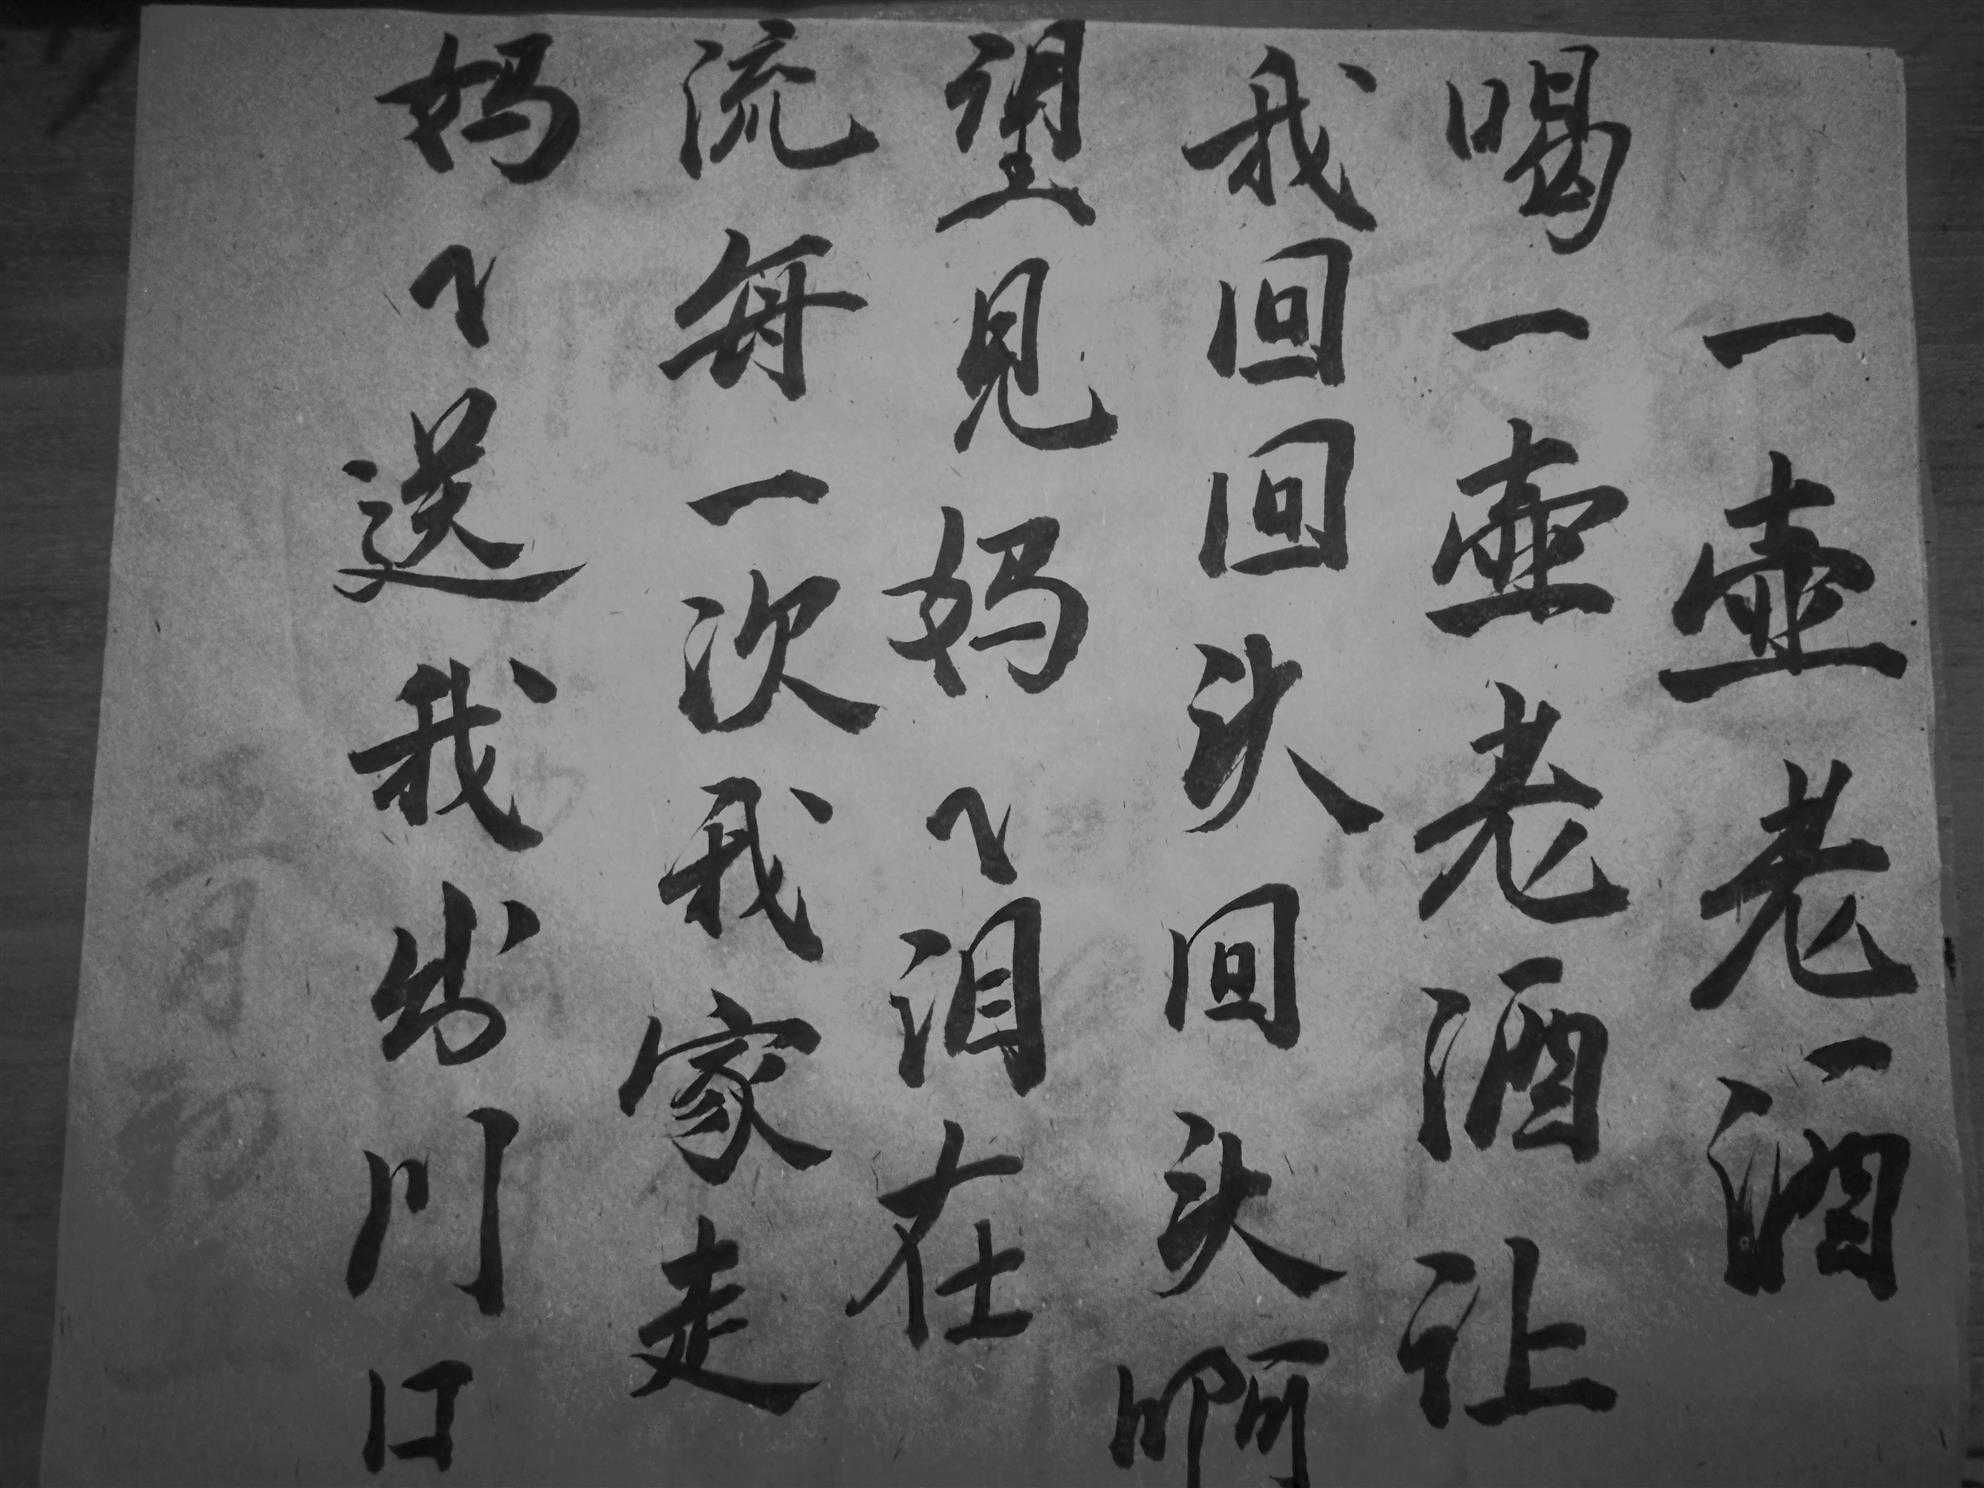 一壶老酒
喝一壶老酒让
我回回头回头啊
望见妈々泪在
流每一次我家走
妈々送我出门口